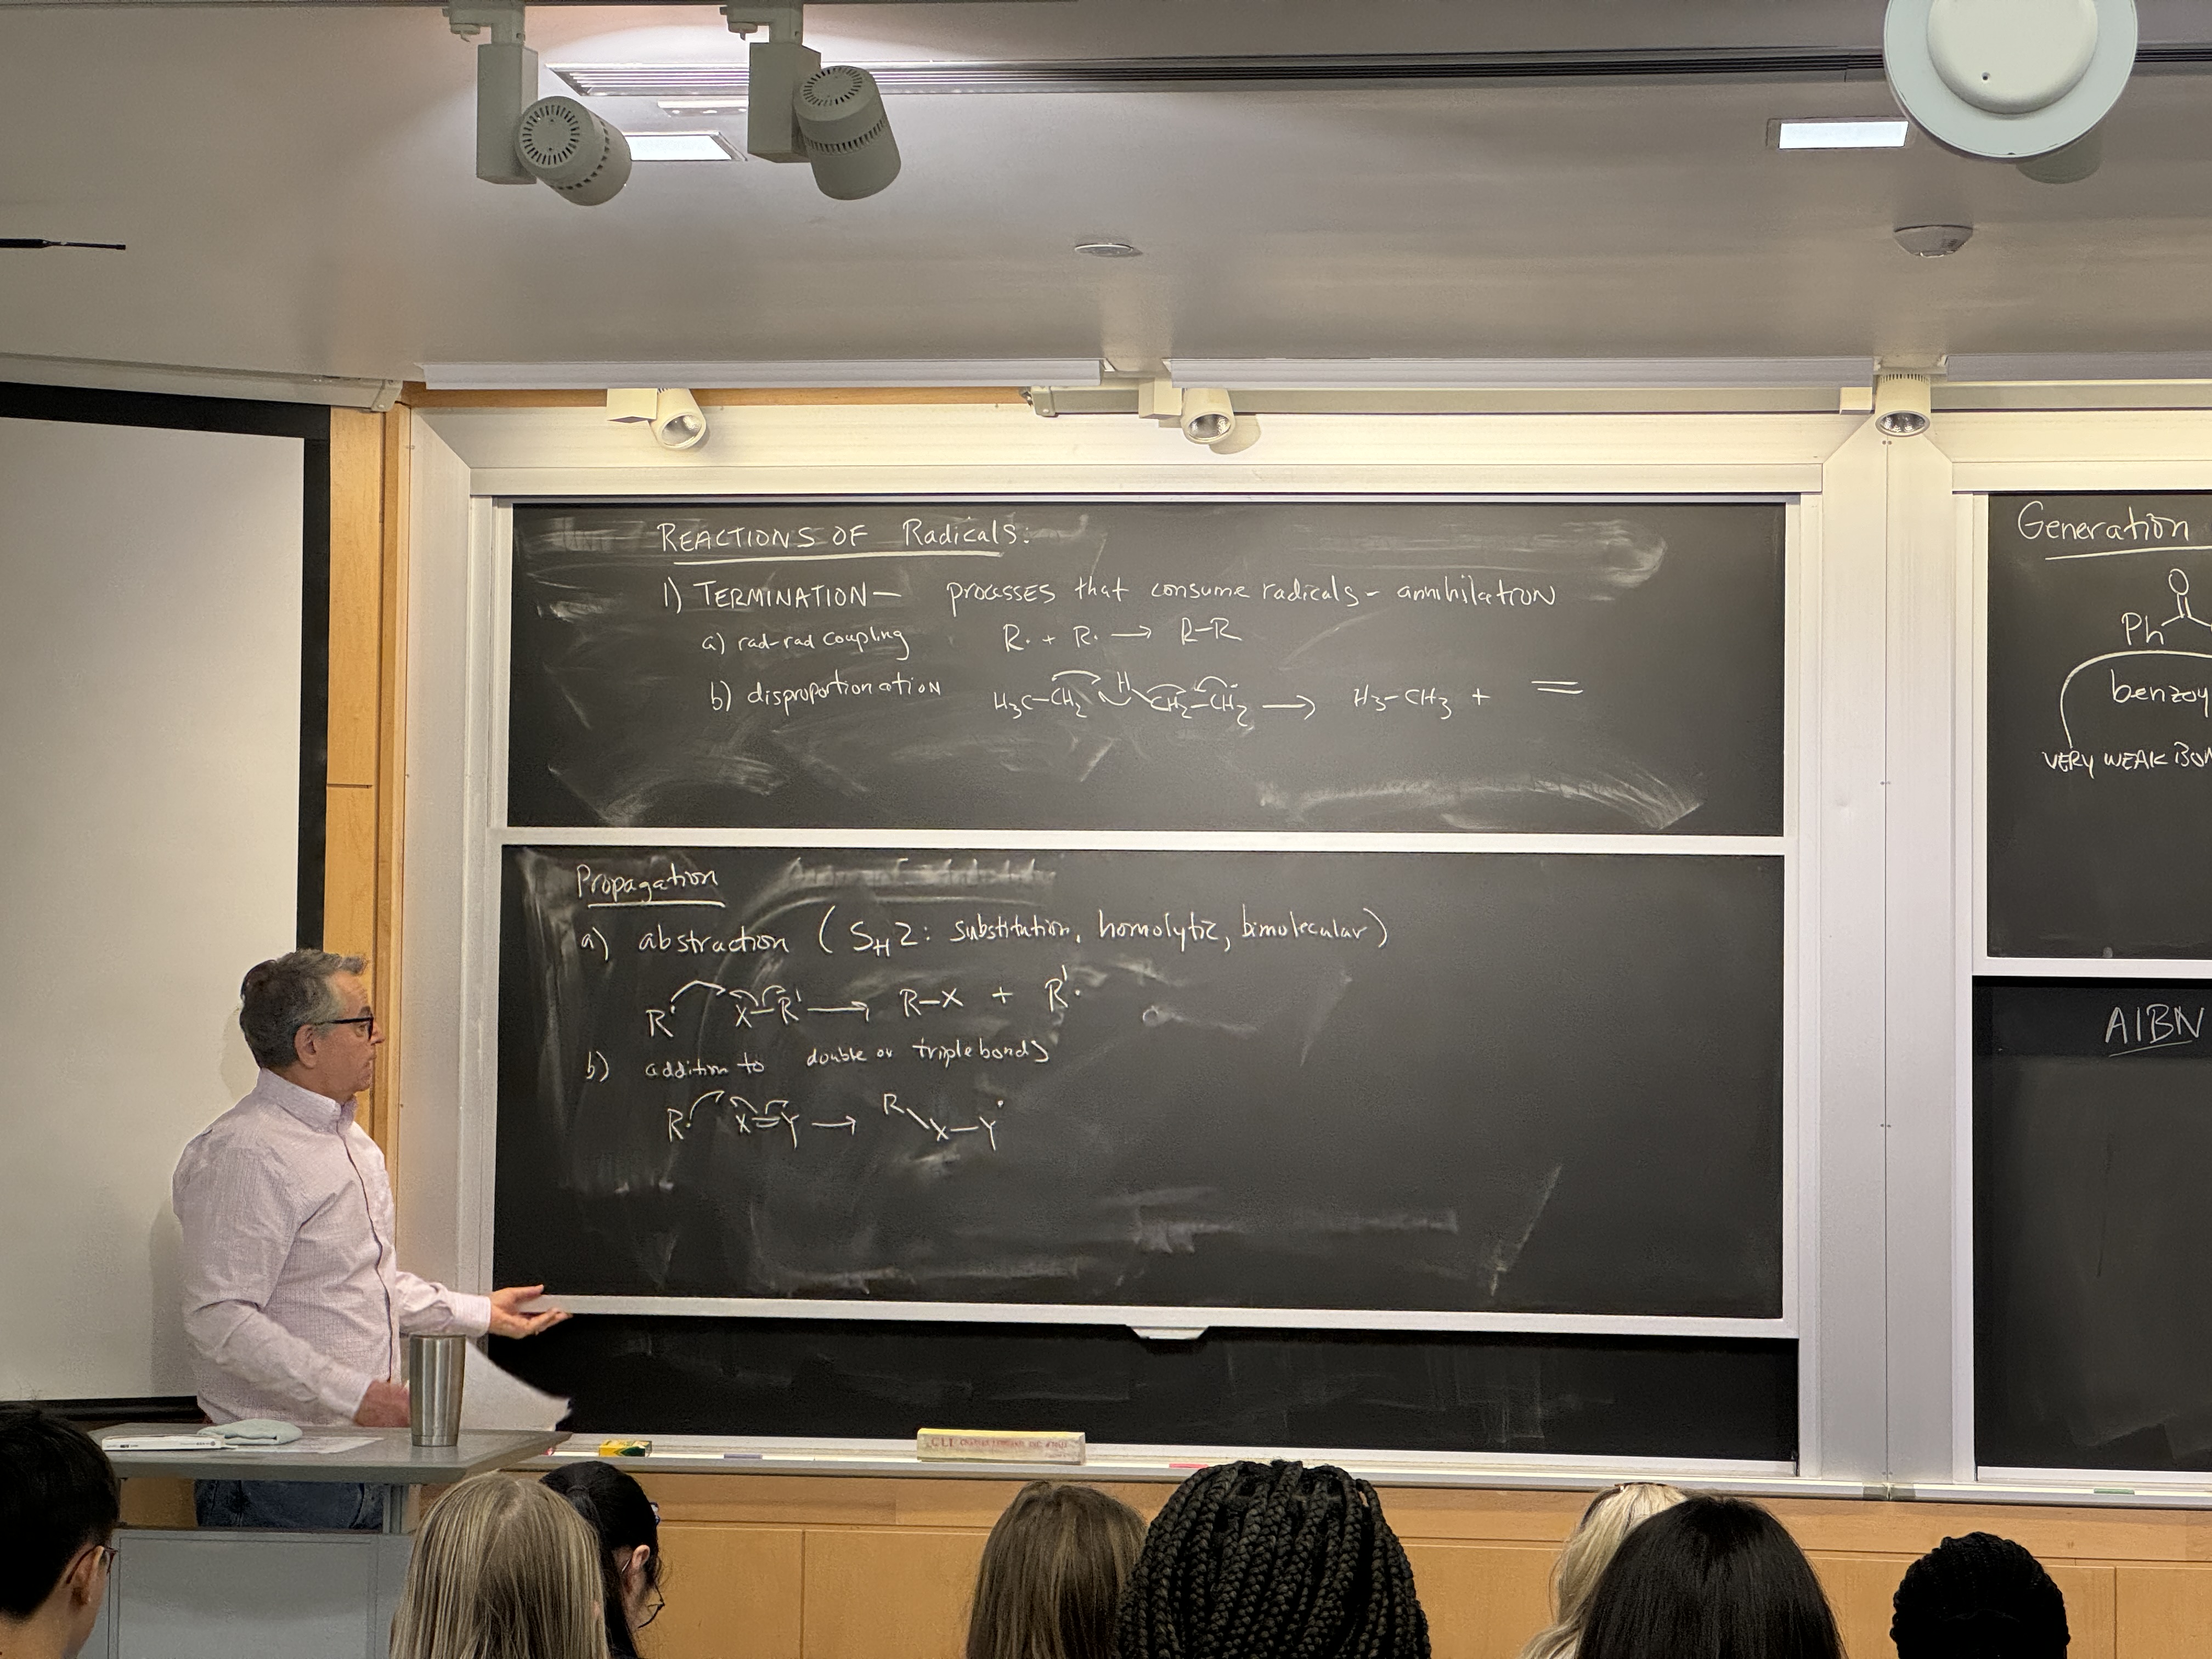 REACTIONS OF Radicals:
1) TERMINATION — processes that consume radicals - annihilation
a) rad-rad coupling R· + R· → R-R
b) disproportionation H₃C-CH₂ H CH₂-CH₂ → H₃-CH₃ + =
Propagation
a) abstraction (S_H2: substitution, homolytic, bimolecular)
R· X-R' → R-X + R'·
b) addition to double or triple bonds
R· X=Y → R\X-Y·
Generation
O
Ph
benzoy
VERY WEAK BON
AIBN